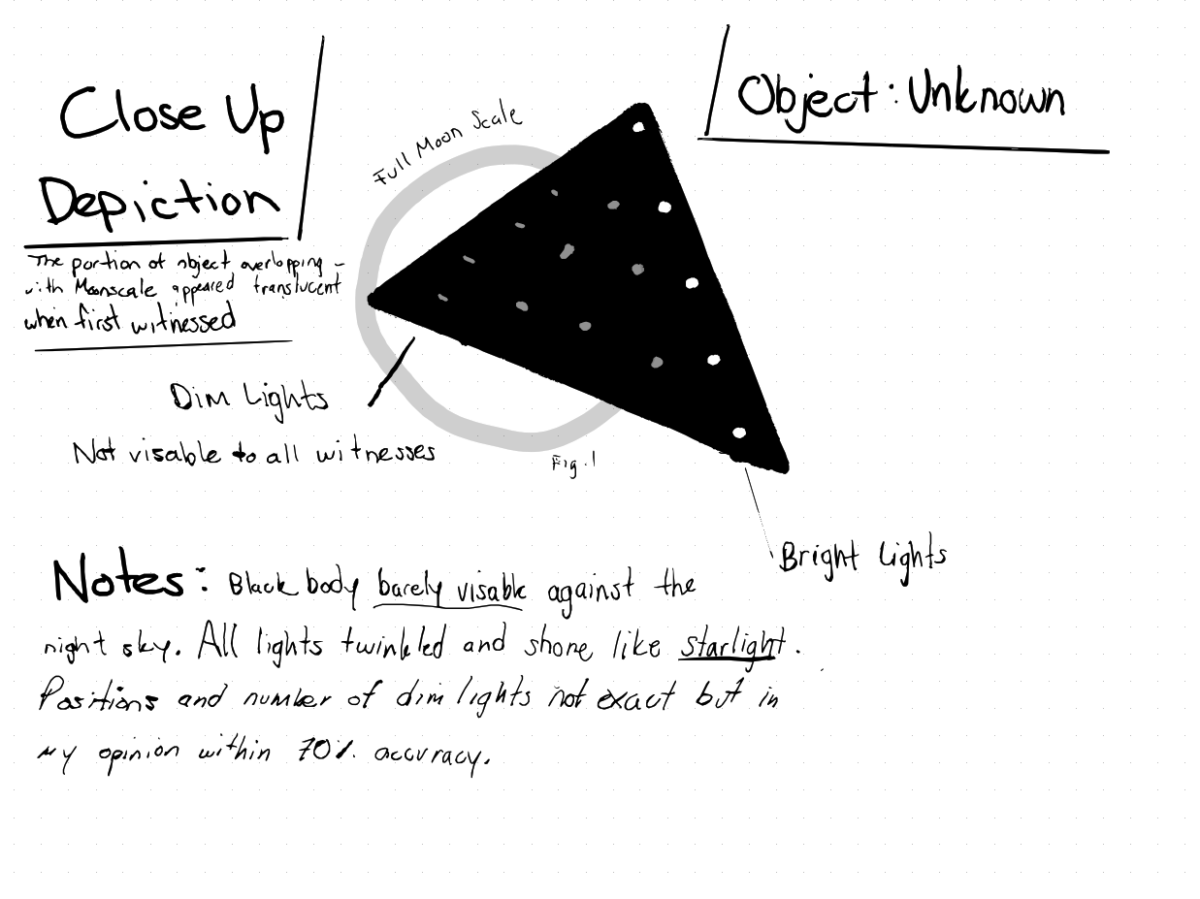 Close Up
Depiction
The portion of object overlapping -
with Moonscale appeared translucent
when first witnessed
Full Moon Scale
Object: Unknown
Dim Lights
Not visable to all witnesses
Fig. 1
Bright Lights
Notes: Black body barely visable against the
night sky. All lights twinkled and shone like starlight.
Positions and number of dim lights not exact but in
my opinion within 70% accuracy.